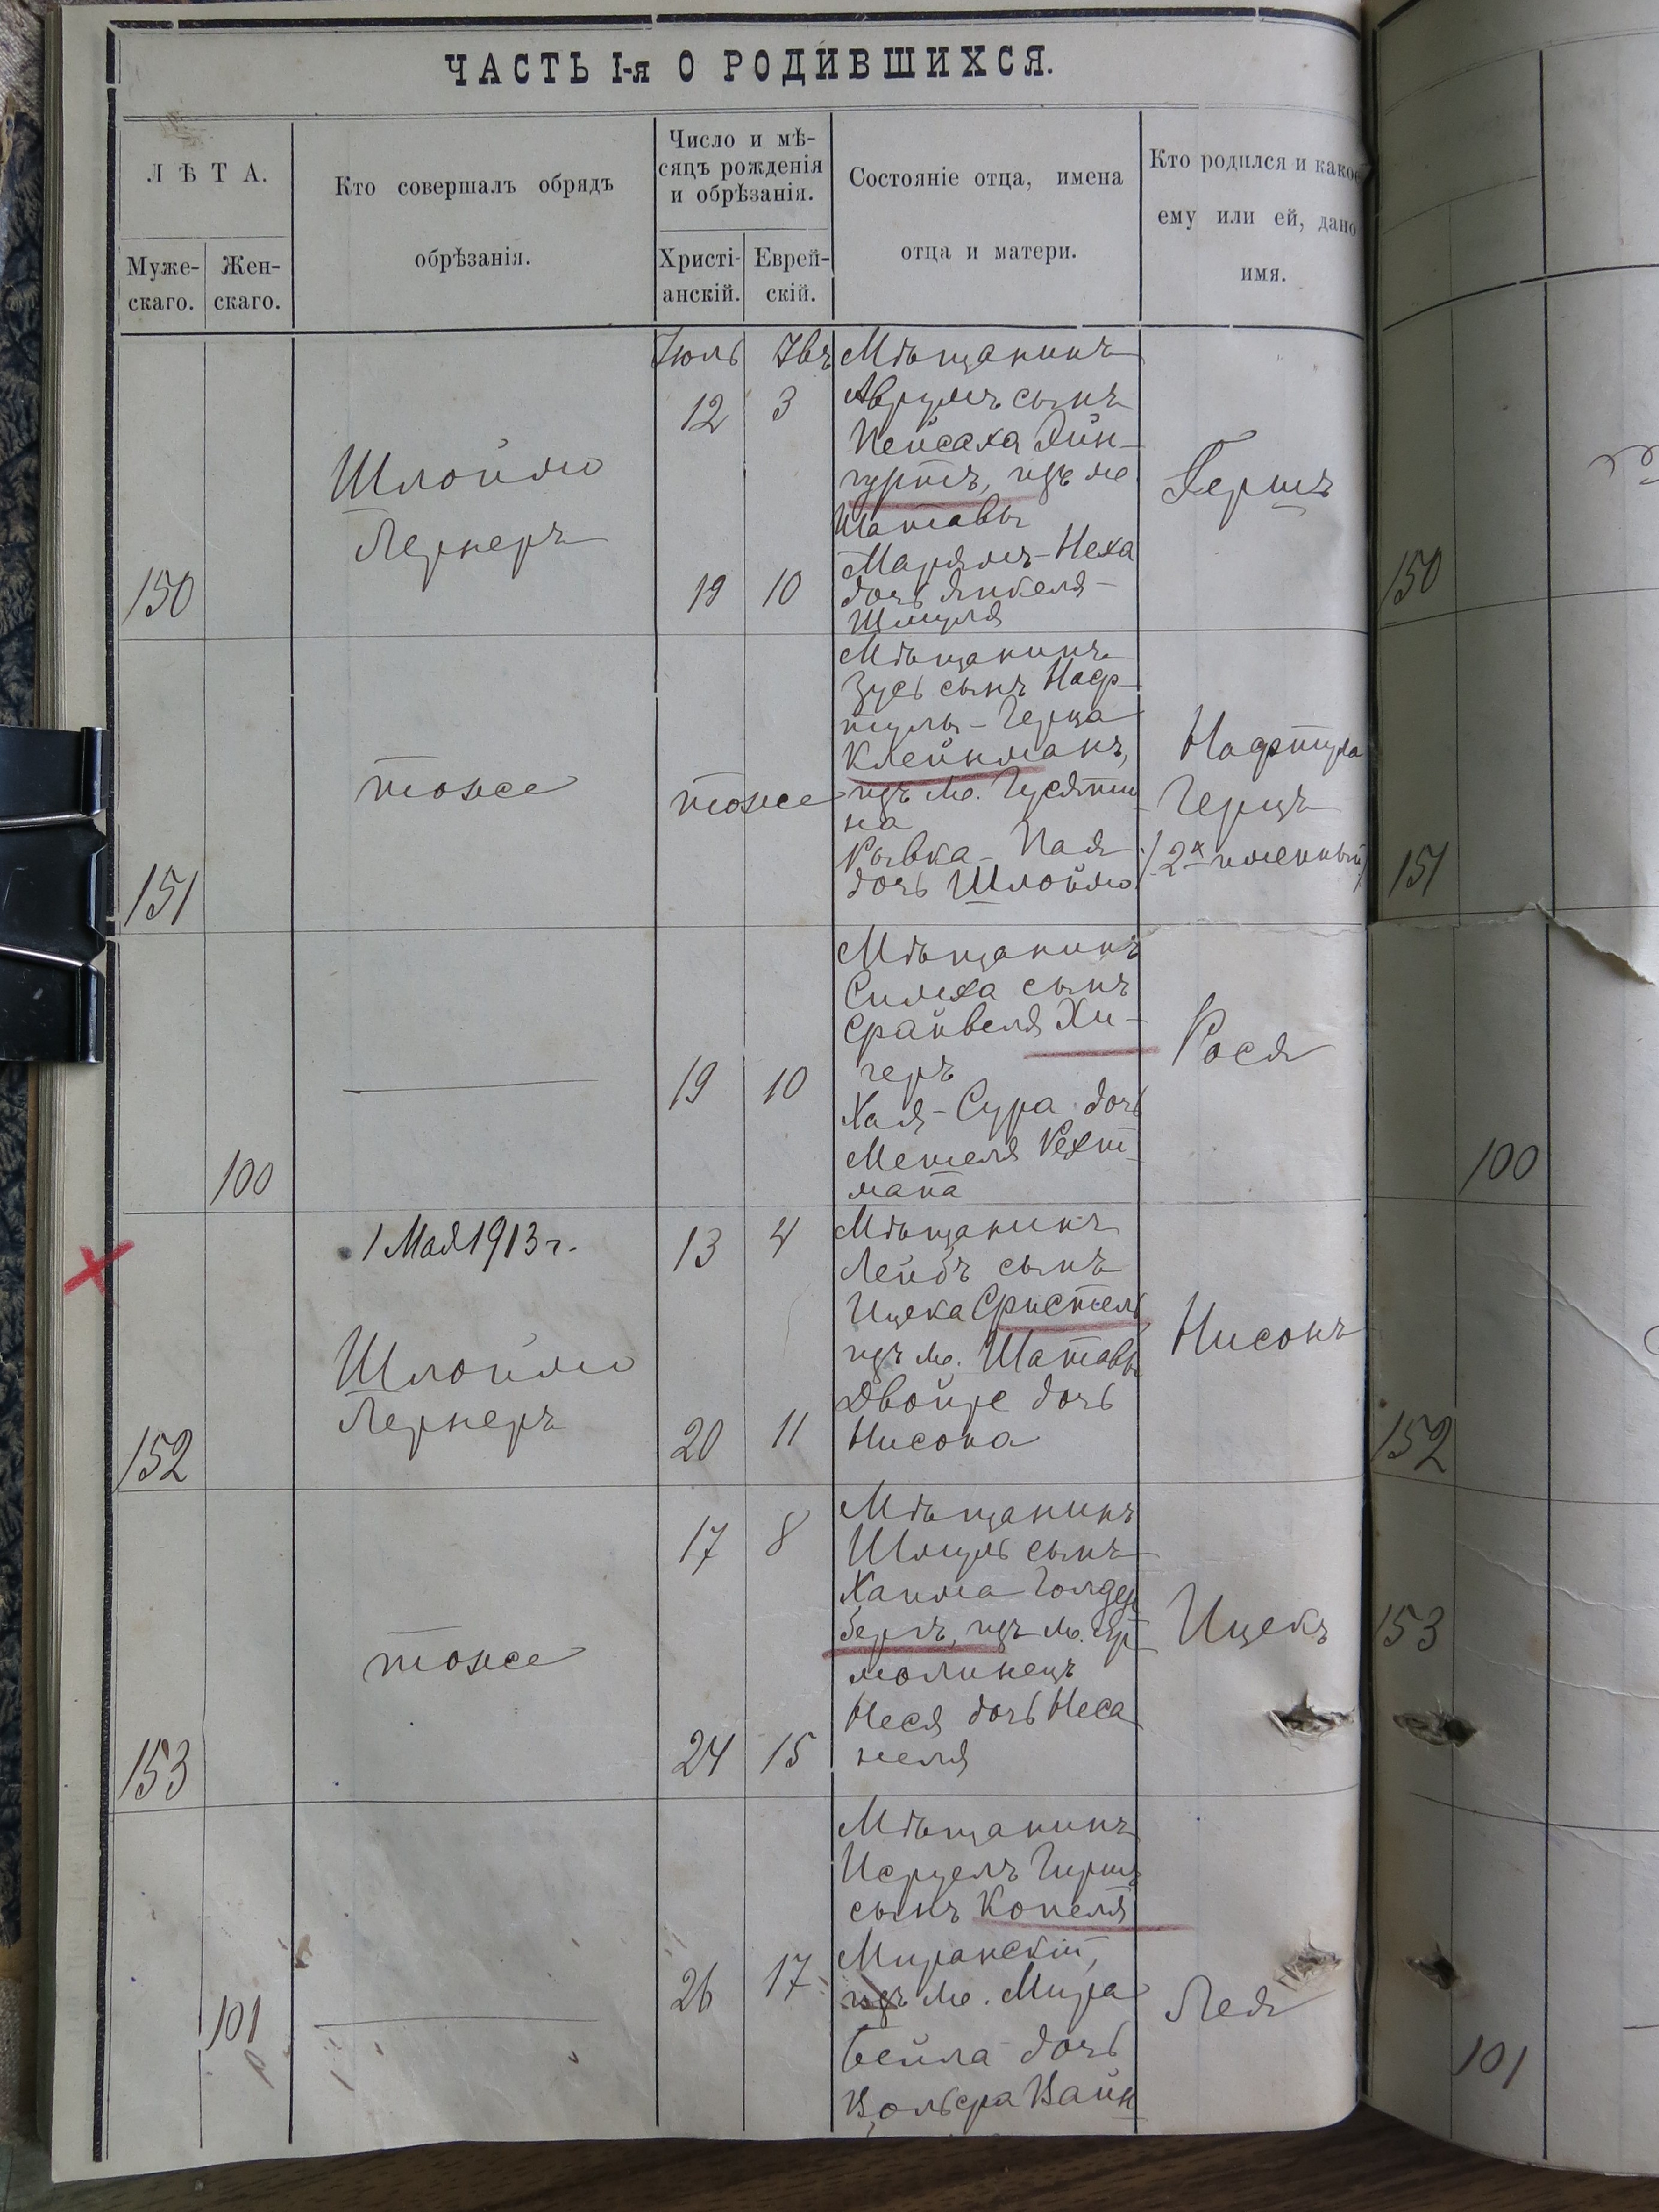 ЧАСТЬ I-я О РОДИВШИХСЯ.
ЛѢТА.
Муже-
скаго.
Жен-
скаго.
Кто совершалъ обрядъ
обрѣзанія.
Число и мѣ-
сяцъ рожденія
и обрѣзанія.
Христі-
анскій.
Еврей-
скій.
Состояніе отца, имена
отца и матери.
Кто родился и какое
ему или ей, дано
имя.
150
Шлоймо
Лернеръ
Іюль
12
19
3
10
Мѣщанинъ
Аврумъ сынъ
Пейсаха
гуртъ, изъ м.
Шатавы
Марямъ-Неха
дочь Янкеля-
Шмуля
Гершъ
150
151
тоже
тоже
Мѣщанинъ
Зусь сынъ Наф-
тулы-Герца
Клейнманъ,
изъ м. Гусяти
на
Рывка-Пая
дочь Шлоймо
Нафтула
Герцъ
/2х именный/
151
100
19
10
Мѣщанинъ
Симха сынъ
Срайвеля Хи-
геръ
Хая-Сура дочь
Менделя Рехт
мана
Рося
100
1 Мая 1913 г.
152
Шлоймо
Лернеръ
13
20
4
11
Мѣщанинъ
Лейбъ сынъ
Ицека Фистель
изъ м. Шатавы
Двойре дочь
Нисона
Нисонъ
152
153
тоже
17
24
8
15
Мѣщанинъ
Шмуль сынъ
Хаима Голден
бергъ, изъ м. Яр
молинецъ
Неся дочь Неса
неля
Ицекъ
153
101
26
17
Мѣщанинъ
Исруелъ Гиршъ
сынъ Копеля
Миранскій,
изъ м. Мира
Бейла дочь
Вольфа Вайн
Лея
101